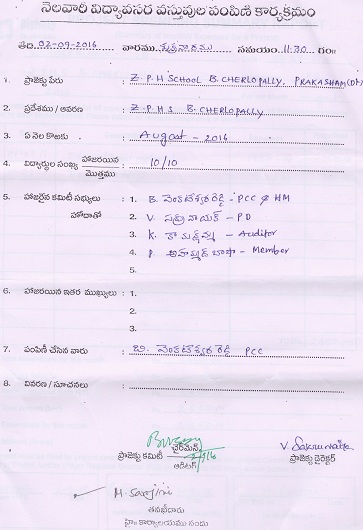 నెలవారీ విద్యావసర వస్తువుల పంపిణి కార్యక్రమం
తేది: 02-09-2016 వారము శుక్రవారము సమయం: 11:30 గం॥
1. ప్రాజెక్టు పేరు : Z.P.H SCHOOL B. CHERLOPALLY, PRAKASHAM(Dt)
2. ప్రదేశము / ఆవరణ : Z.P.H.S B. CHERLOPALLY
3. ఏ నెల కొఱకు : August - 2016
4. విద్యార్థుల సంఖ్య హాజరయిన / మొత్తము : 10/10
5. హాజరైన కమిటీ సభ్యులు : 1. B. వెంకటేశ్వర రెడ్డి - PCC & HM
హోదాతో 2. V. నాయక్ - PD
3. K. - Auditor
4. అహమ్మద్ బాషా - Member
5.
6. హాజరయిన ఇతర ముఖ్యులు : 1.
2.
3.
7. పంపిణీ చేసిన వారు : బి. వెంకటేశ్వర రెడ్డి PCC
8. వివరణ / సూచనలు :
చైర్మన్ 2/9/16
ప్రాజెక్టు కమిటీ ప్రాజెక్టు డైరెక్టర్
ఆడిటర్
M. Sarojini
తనఖీదారు
హై॥ కార్యాలయము నందు